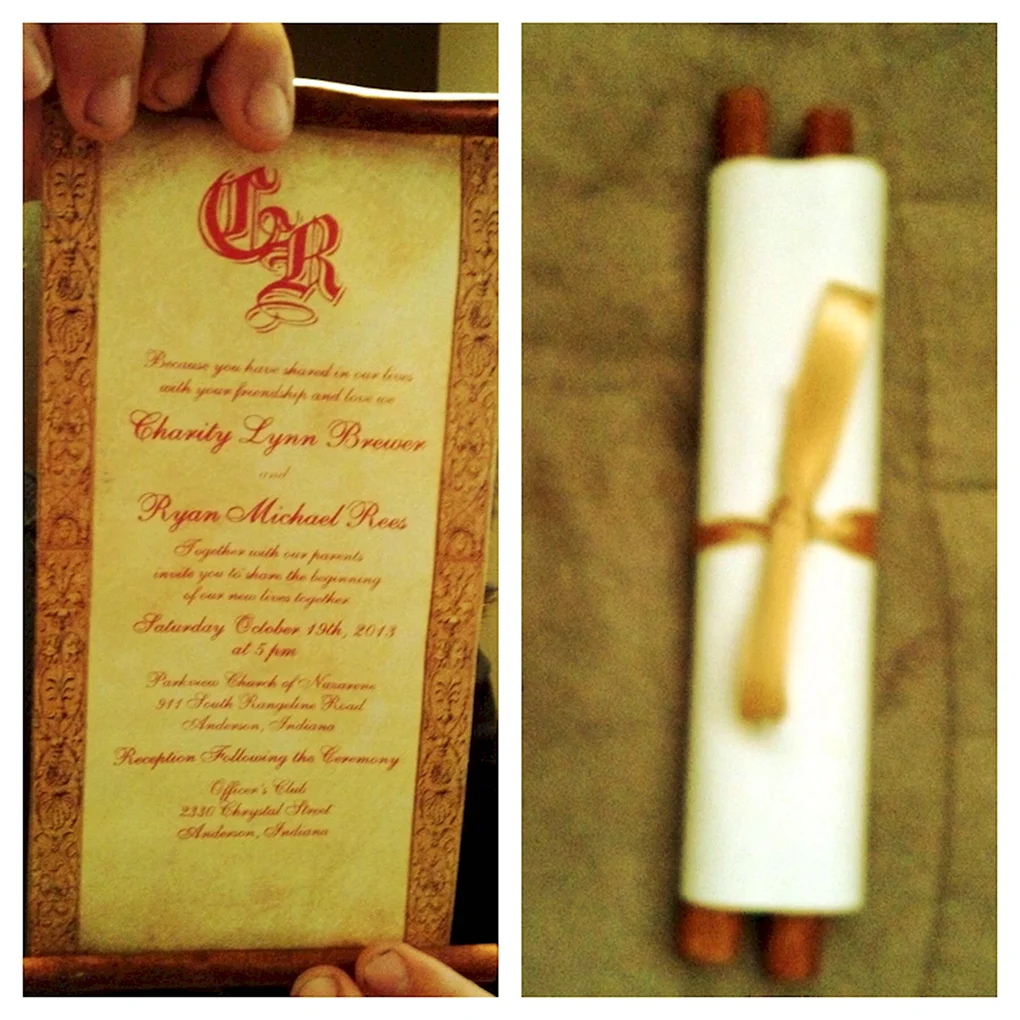 CR
Because you have shared in our lives
with your friendship and love we
Charity Lynn Brewer
and
Ryan Michael Rees
Together with our parents
invite you to share the beginning
of our new lives together
Saturday October 19th, 2013
at 5 pm
Parkview Church of Nazarene
911 South Rangeline Road
Anderson, Indiana
Reception Following the Ceremony
Officer's Club
2330 Chrystal Street
Anderson, Indiana